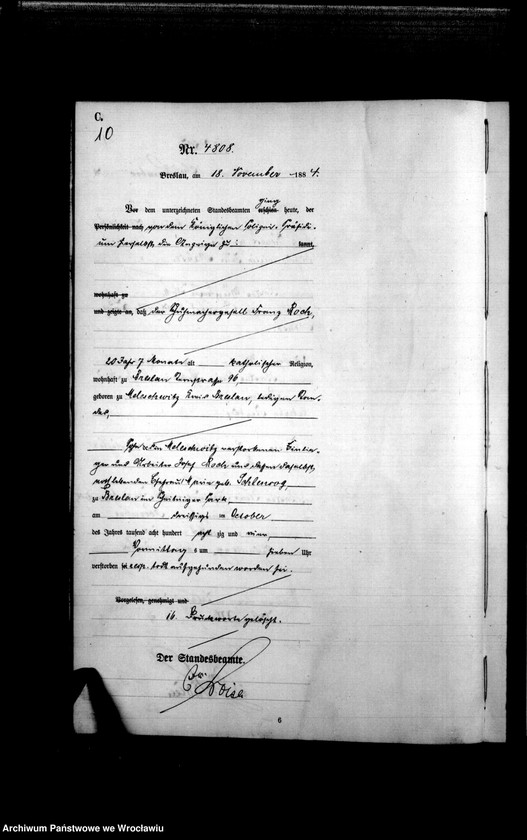 C.
10
Nr. 4808.
Breslau, am 18. November 1884.
Vor dem unterzeichneten Standesbeamten erschien ging heute, der
Persönlichkeit nach von dem Königlichen Polizei-Präsidi-
um hierselbst, die Anzeige zu: kannt,
wohnhaft zu
und zeigte an, daß der Schuhmachergesell Franz Koch,
20 Jahr 7 Monate alt katholischer Religion,
wohnhaft zu Breslau 96,
geboren zu Meleschwitz Kreis Breslau, ledigen Stan-
des,
Sohn des zu Meleschwitz verstorbenen
und Arbeiter Josef Koch und dessen daselbst
noch lebenden Ehefrau geb.
zu Breslau im Park
am dreißigsten October
des Jahres tausend acht hundert acht zig und vier,
Vormittags um sieben Uhr
verstorben sei resp. todt aufgefunden worden sei.
Vorgelesen, genehmigt und
16 Druckworte gelöscht.
Der Standesbeamte.
6
Archiwum Państwowe we Wrocławiu